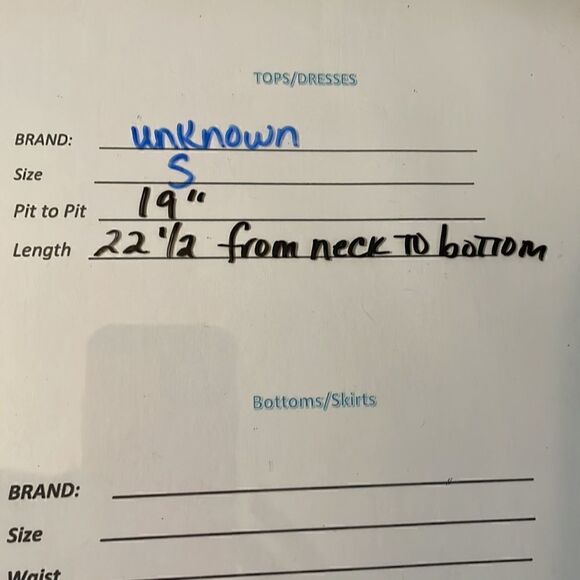 TOPS/DRESSES
BRAND: unknown
Size S
Pit to Pit 19"
Length 22 1/2 from neck TO bottom
Bottoms/Skirts
BRAND:
Size
Waist